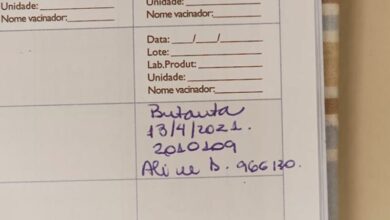 Unidade:
Nome vacinador:
Unidade:
Nome vacinador:
Data: ___/___/___
Lote:
Lab.Produt:
Unidade:
Nome vacinador:
Butanta
13/4/2021.
2010109
Aline D. 966130.